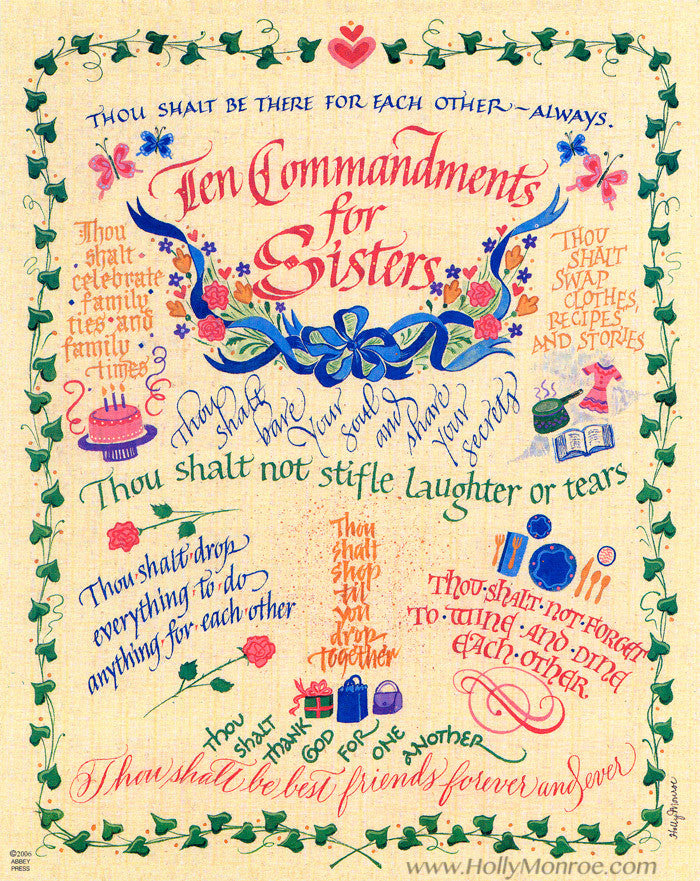 THOU SHALT BE THERE FOR EACH OTHER—ALWAYS.
Ten Commandments
for
Sisters
Thou
shalt
celebrate
family
ties and
family
times
THOU
SHALT
SWAP
CLOTHES,
RECIPES
AND STORIES
Thou shalt bare your soul and share your secrets
Thou shalt not stifle laughter or tears
Thou shalt drop
everything to do
anything for each other
Thou
shalt
shop
'til
you
drop
together
THOU·SHALT·NOT·FORGET
TO·WINE·AND·DINE
EACH·OTHER.
THOU SHALT THANK GOD FOR ONE ANOTHER
Thou shalt be best friends forever and ever
Holly Monroe
©2006
ABBEY
PRESS
www.HollyMonroe.com